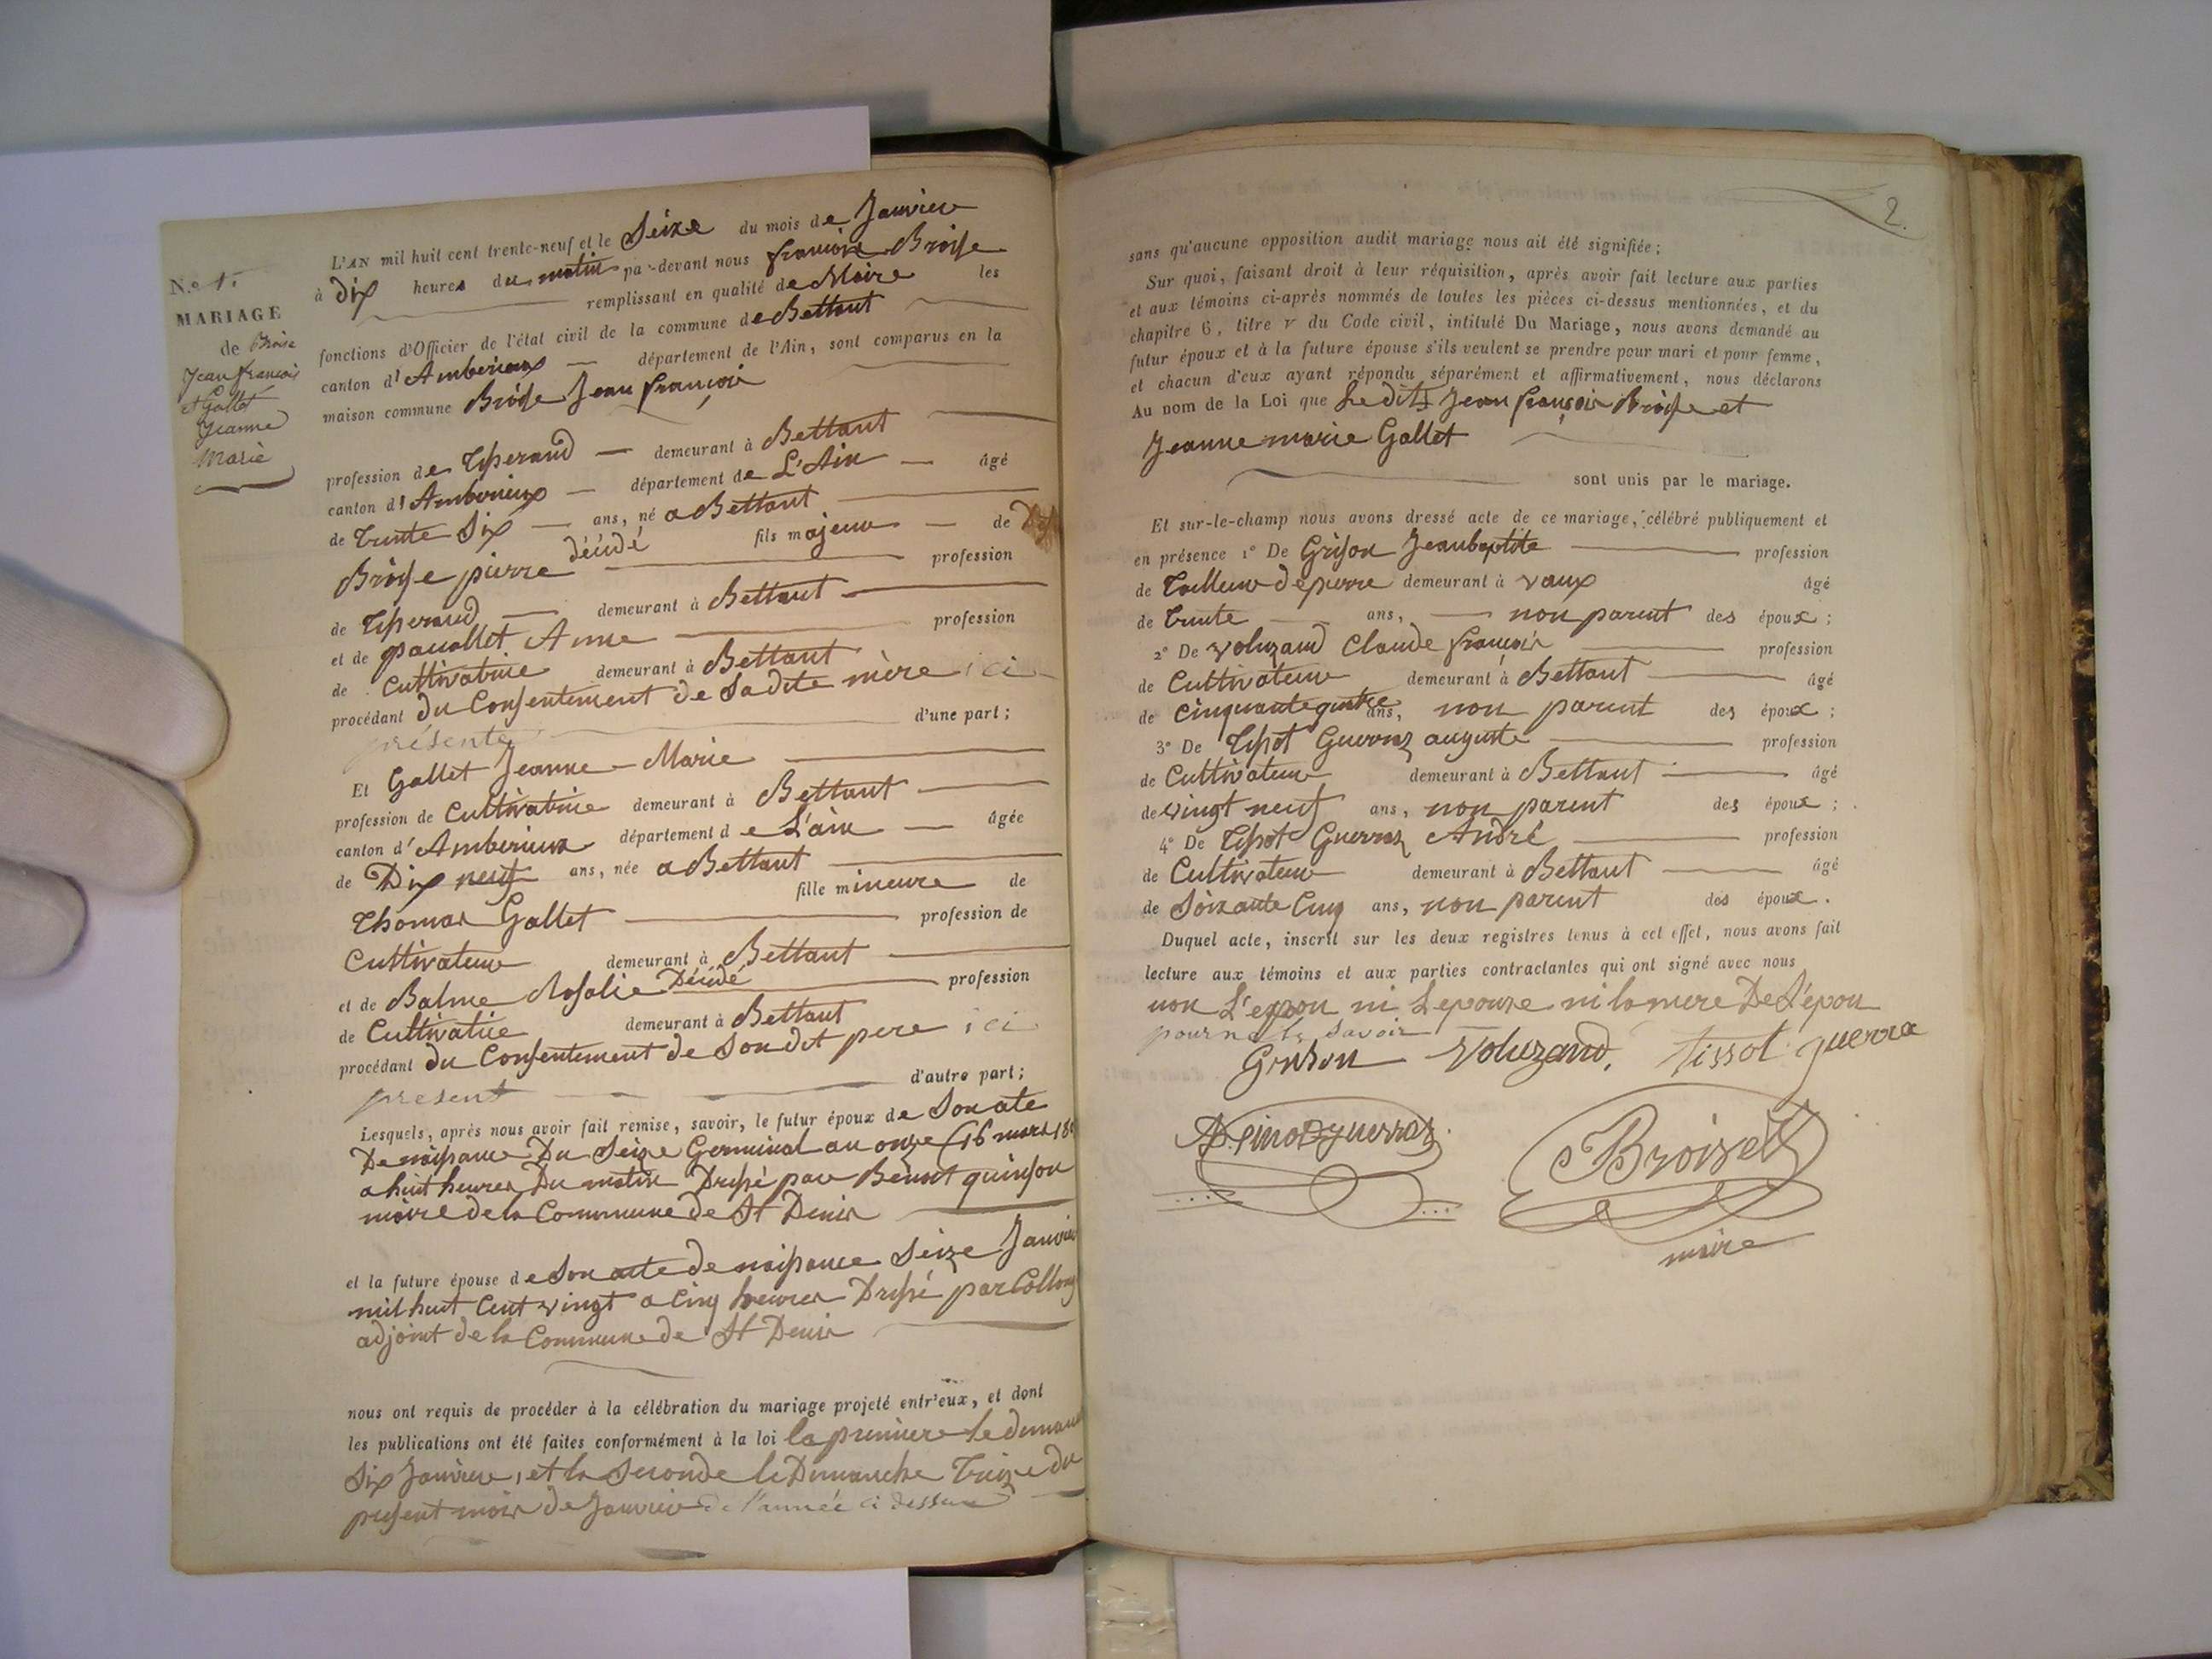 N.º 1.
MARIAGE
de Broise
Jean françois
et Gallet
Jeanne
Marie
L'AN mil huit cent trente-neuf et le Seize du mois de Janvier
à Dix heures du matin par-devant nous françois Broise
remplissant en qualité de Maire les
fonctions d'Officier de l'état civil de la commune de Bettant
canton d'Amberieux département de l'Ain, sont comparus en la
maison commune Broise Jean françois
profession de Tisserand demeurant à Bettant
canton d'Amberieux département de L'Ain âgé
de trente Six ans, né a Bettant
fils majeur de
Broise pierre décédé profession
de Tisserand demeurant à Bettant
et de Anne profession
de Cultivatrice demeurant à Bettant
procédant du Consentement de Sadite mère ici
présente d'une part;
Et Gallet Jeanne-Marie
profession de Cultivatrice demeurant à Bettant
canton d'Amberieux département de L'ain âgée
de Dix neuf ans, née a Bettant
fille mineure de
Thomas Gallet profession de
Cultivateur demeurant à Bettant
et de Balme Rosalie Décédé profession
de Cultivatrice demeurant à Bettant
procédant du Consentement de Son dit pere ici
present d'autre part;
Lesquels, après nous avoir fait remise, savoir, le futur époux de Son acte
De naissance Du Seize Germinal an onze (16 mars
a huit heures Du matin Dressé par Benoit quinson
maire de la Commune de St Denis
et la future épouse de Son acte de naissance Seize Janvier
mil huit Cent vingt a Cinq heures Dressé par
adjoint de la Commune de St Denis
nous ont requis de procéder à la célébration du mariage projeté entr'eux, et dont
les publications ont été faites conformément à la loi la premiere le
Six Janvier, et la Seconde le Dimanche Treize du
present mois de Janvier de l'année ci dessus
2.
sans qu'aucune opposition audit mariage nous ait été signifiée;
Sur quoi, faisant droit à leur réquisition, après avoir fait lecture aux parties
et aux témoins ci-après nommés de toutes les pièces ci-dessus mentionnées, et du
chapitre 6, titre v du Code civil, intitulé Du Mariage, nous avons demandé au
futur époux et à la future épouse s'ils veulent se prendre pour mari et pour femme,
et chacun d'eux ayant répondu séparément et affirmativement, nous déclarons
Au nom de la Loi que Ledits Jean françois Broise et
Jeanne marie Gallet
sont unis par le mariage.
Et sur-le-champ nous avons dressé acte de ce mariage, célébré publiquement et
en présence 1º De Grison Jean baptiste profession
de Tailleur de pierre demeurant à vaux âgé
de trente ans, non parent des époux;
2º De Voluzand Claude françois profession
de Cultivateur demeurant à Bettant âgé
de Cinquante quatre ans, non parent des époux;
3º De Tissot Guerraz auguste profession
de Cultivateur demeurant à Bettant âgé
de vingt neuf ans, non parent des époux;
4º De Tissot Guerraz André profession
de Cultivateur demeurant à Bettant âgé
de Soixante Cinq ans, non parent des époux.
Duquel acte, inscrit sur les deux registres tenus à cet effet, nous avons fait
lecture aux témoins et aux parties contractantes qui ont signé avec nous
non L'epou ni Lepouse ni la mere De L'epou
pour ne le Savoir
Grison Voluzand, tissot guerra
Broizet
maire